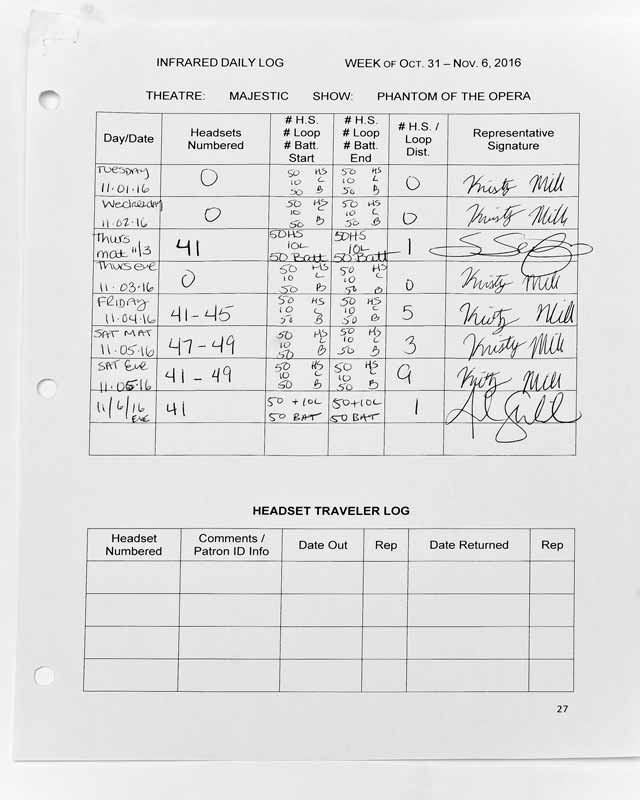 INFRARED DAILY LOG WEEK OF OCT. 31 – NOV. 6, 2016
THEATRE: MAJESTIC SHOW: PHANTOM OF THE OPERA
Day/Date Headsets Numbered # H.S. # Loop # Batt. Start # H.S. # Loop # Batt. End # H.S. / Loop Dist. Representative Signature
TUESDAY 11.01.16 0 50 HS 10 L 50 B 50 HS 10 L 50 B 0 Kristy Mill
Wednesday 11.02.16 0 50 HS 10 L 50 B 50 HS 10 L 50 B 0 Kristy Mill
Thurs mat 11/3 41 50HS 10L 50 Batt 50HS 10L 50 Batt 1
Thurs eve 11.03.16 0 50 HS 10 L 50 B 50 HS 10 L 50 B 0 Kristy Mill
FRIDAY 11.04.16 41-45 50 HS 10 L 50 B 50 HS 10 L 50 B 5 Kristy Mill
SAT MAT 11.05.16 47-49 50 HS 10 L 50 B 50 HS 10 L 50 B 3 Kristy Mill
SAT Eve 11.05.16 41-49 50 HS 10 L 50 B 50 HS 10 L 50 B 9 Kristy Mill
11/6/16 EVE 41 50 +10L 50 BAT 50+10L 50 BAT 1
HEADSET TRAVELER LOG
Headset Numbered Comments / Patron ID Info Date Out Rep Date Returned Rep
27